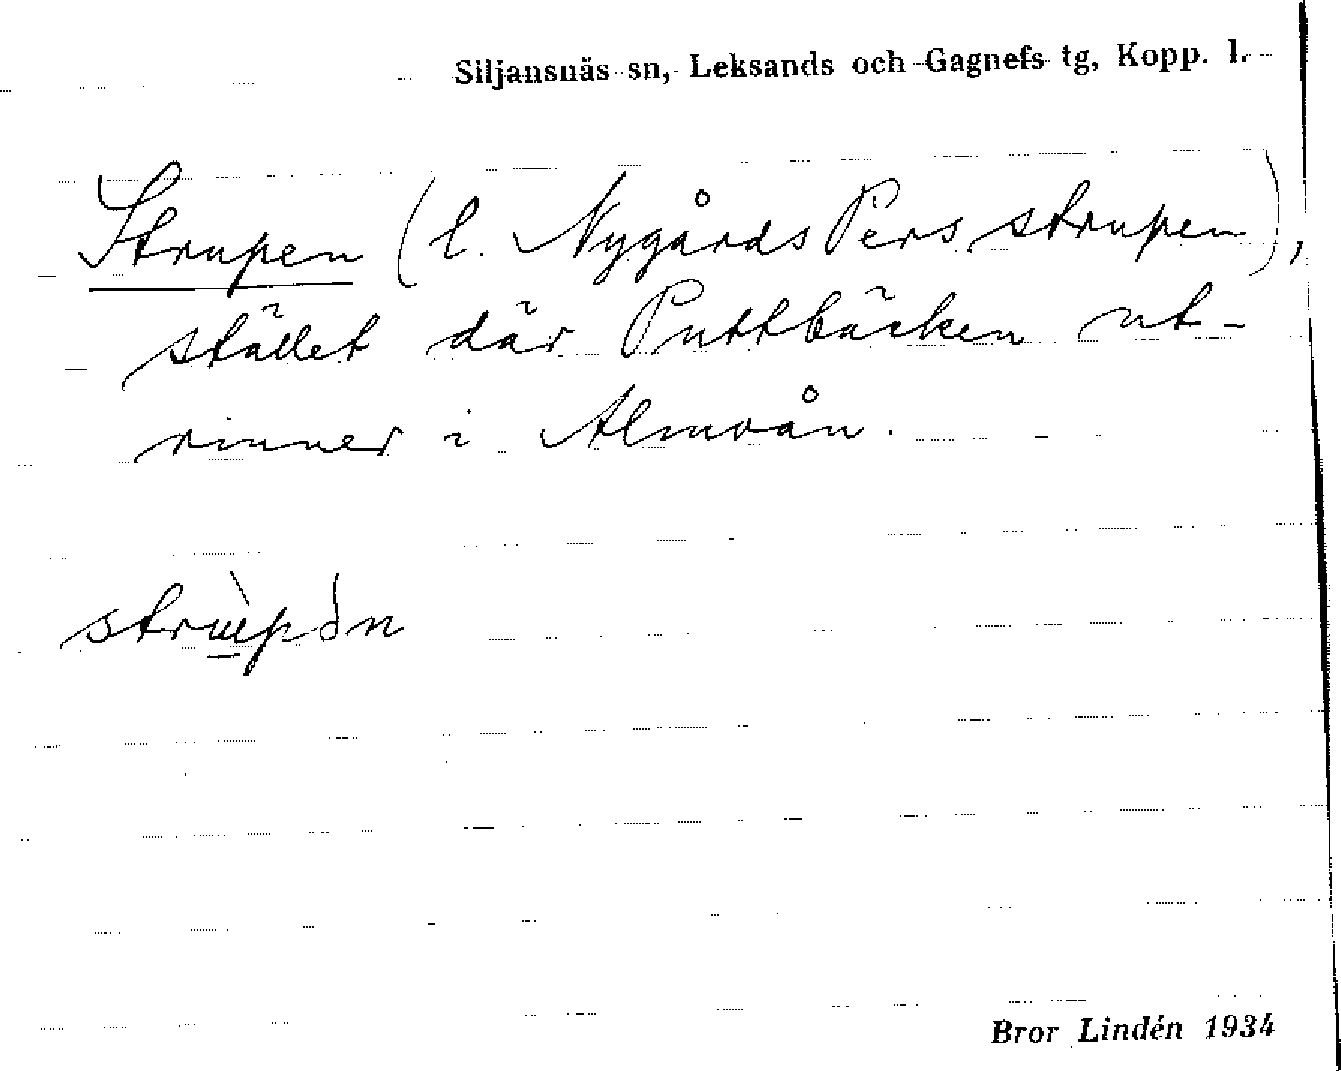 Siljansnäs sn, Leksands och Gagnefs tg, Kopp. l.
Strupen (l. Nygårds Pers strupen),
stället där Puttbäcken ut-
rinner i Almoån.
Bror Lindén 1934